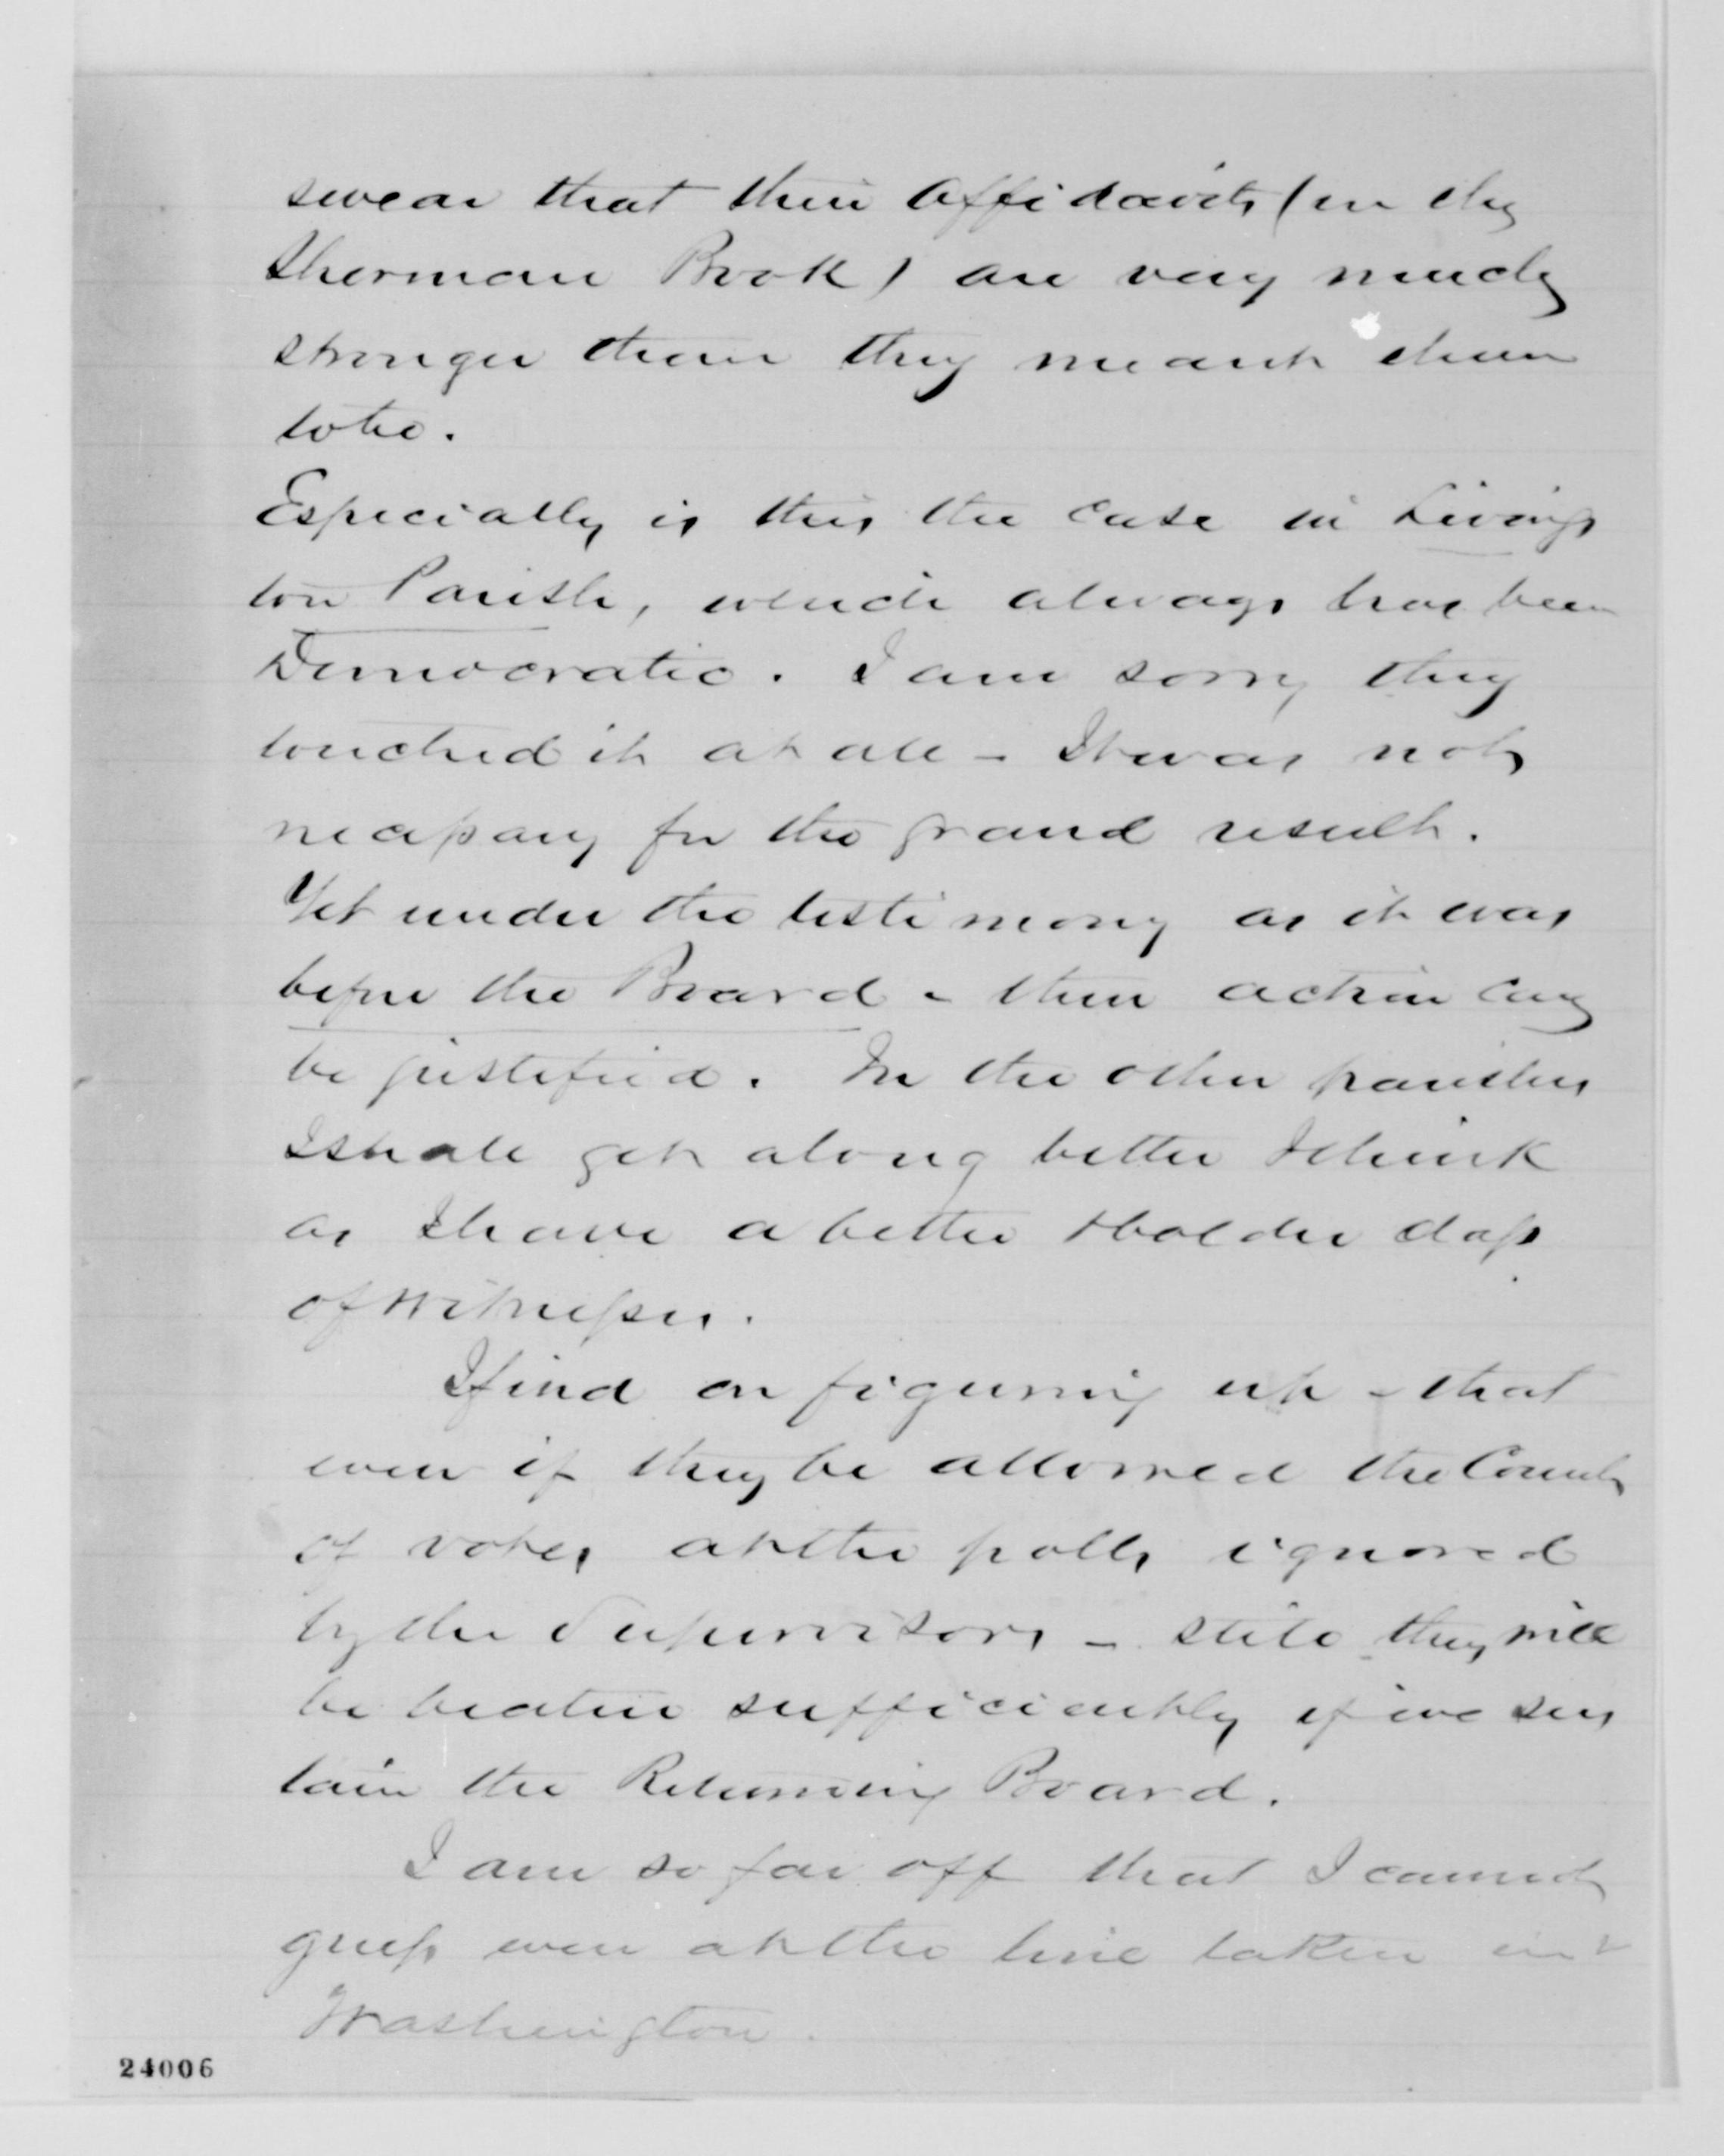 swear that their affidavits (in the
Sherman Book) are very much
stronger than they meant them
to be.
Especially is this the case in Livings
ton Parish, which always has been
Democratic. I am sorry they
touched it at all – It was not
necessary for the grand result.
Yet under the testimony as it was
before the Board – their action can
be justified. In the other parishes
I shall get along better I think
as I have a better & bolder class
of witnesses.
I find on figuring up – that
even if they be allowed the Count
of votes at the polls ignored
by the Supervisors – still they will
be beaten sufficiently if we sus
tain the Returning Board.
I am so far off that I cannot
guess even at the line taken in
Washington.
24006